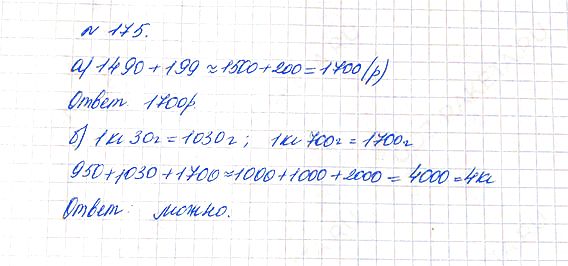 № 175.
а) 1490 + 199 ≈ 1500 + 200 = 1700 (р)
Ответ 1700р
б) 1кг 30г = 1030г ; 1кг 700г = 1700г
950 + 1030 + 1700 ≈ 1000 + 1000 + 2000 = 4000 = 4кг
Ответ: можно.